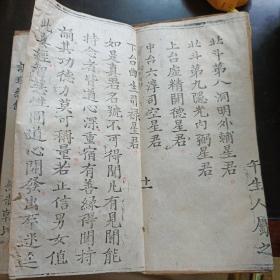 午生人屬之
北斗第八洞明外輔星君
北斗第九隱光內弼星君
上台虛精開德星君
中台六淳司空星君
下台曲生司祿星君
如是真君名號不可得聞凡有見聞能
持念者皆道心深重宿有善緣得聞持
誦其功德力莫可稱量若正信男女值
此真經智慧性圓道心開發出衆迷逕
十一